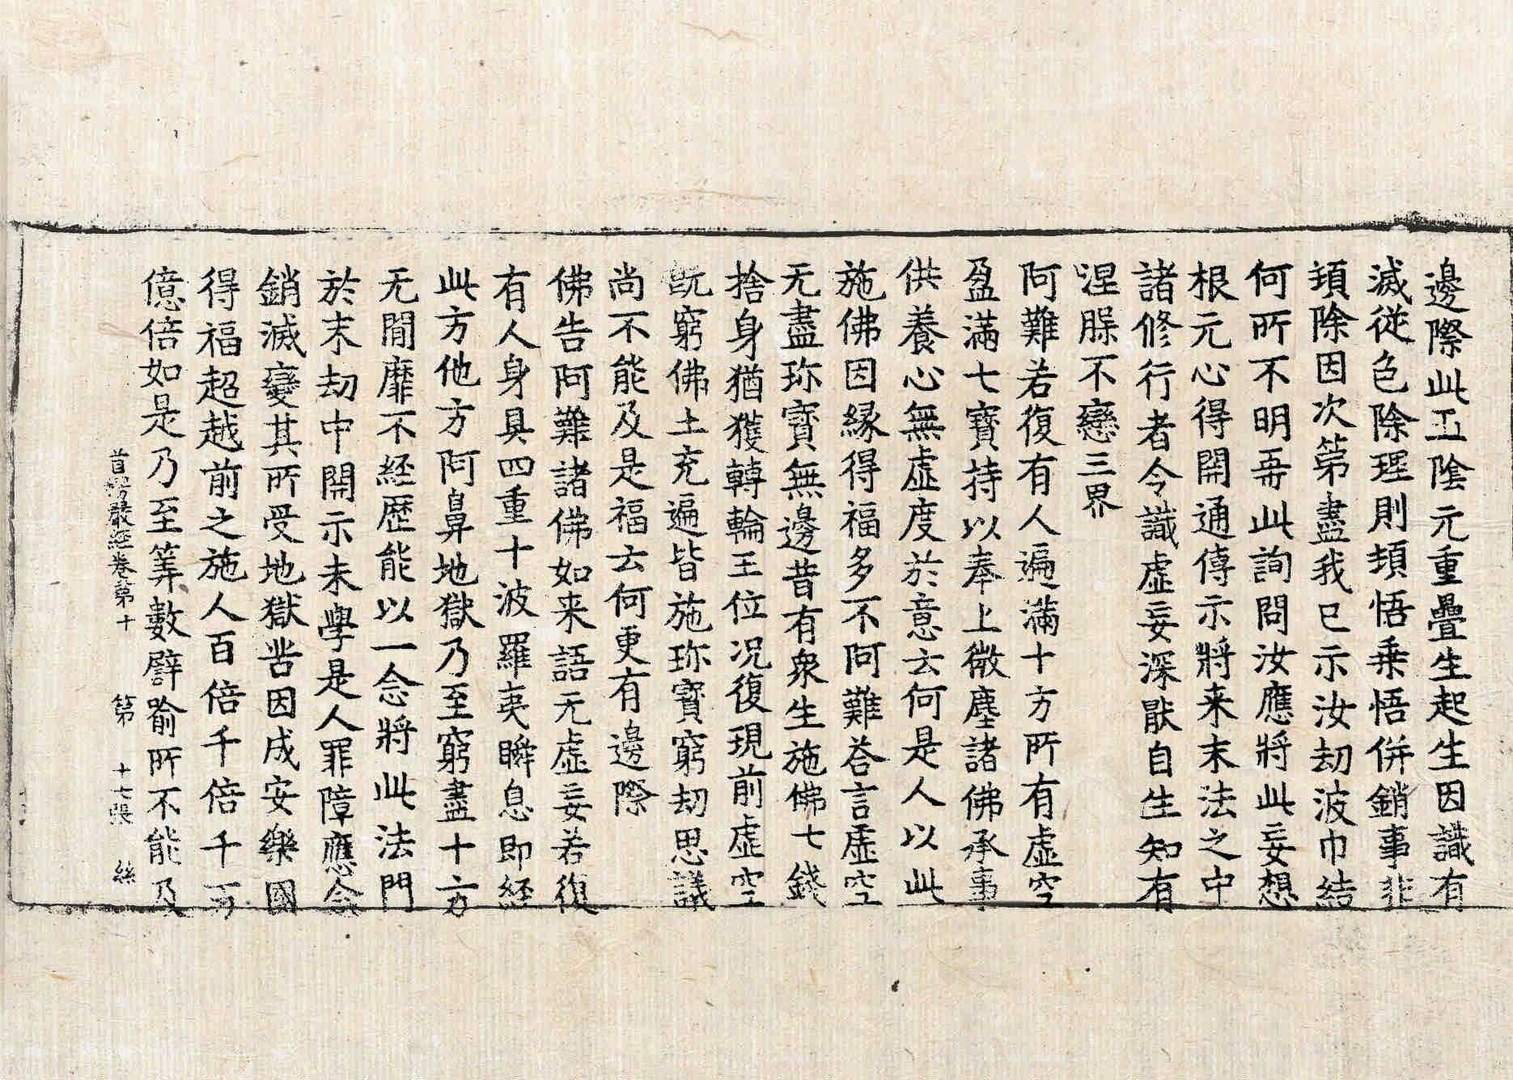 邊際此五陰元重疊生起生因識有
滅從色除理則頓悟乗悟併銷事非
頓除因次第盡我已示汝劫波巾結
何所不明再此詢問汝應將此妄想
根元心得開通傳示將来末法之中
諸修行者令識虛妄深厭自生知有
涅槃不戀三界
阿難若復有人遍滿十方所有虛空
盈滿七寶持以奉上微塵諸佛承事
供養心無虛度於意云何是人以此
施佛因緣得福多不阿難荅言虛空
无盡珎寳無邊昔有衆生施佛七錢
捨身猶獲轉輪王位况復現前虛空
既窮佛土充遍皆施珎寳窮劫思議
尚不能及是福云何更有邊際
佛告阿難諸佛如来語无虛妄若復
有人身具四重十波羅夷瞬息即經
此方他方阿鼻地獄乃至窮盡十方
无間靡不経歴能以一念將此法門
於末劫中開示未學是人罪障應念
銷滅變其所受地獄苦因成安樂國
得福超越前之施人百倍千倍千万
億倍如是乃至筭數譬喻所不能及
首楞嚴経卷第十 第 十七張 絲